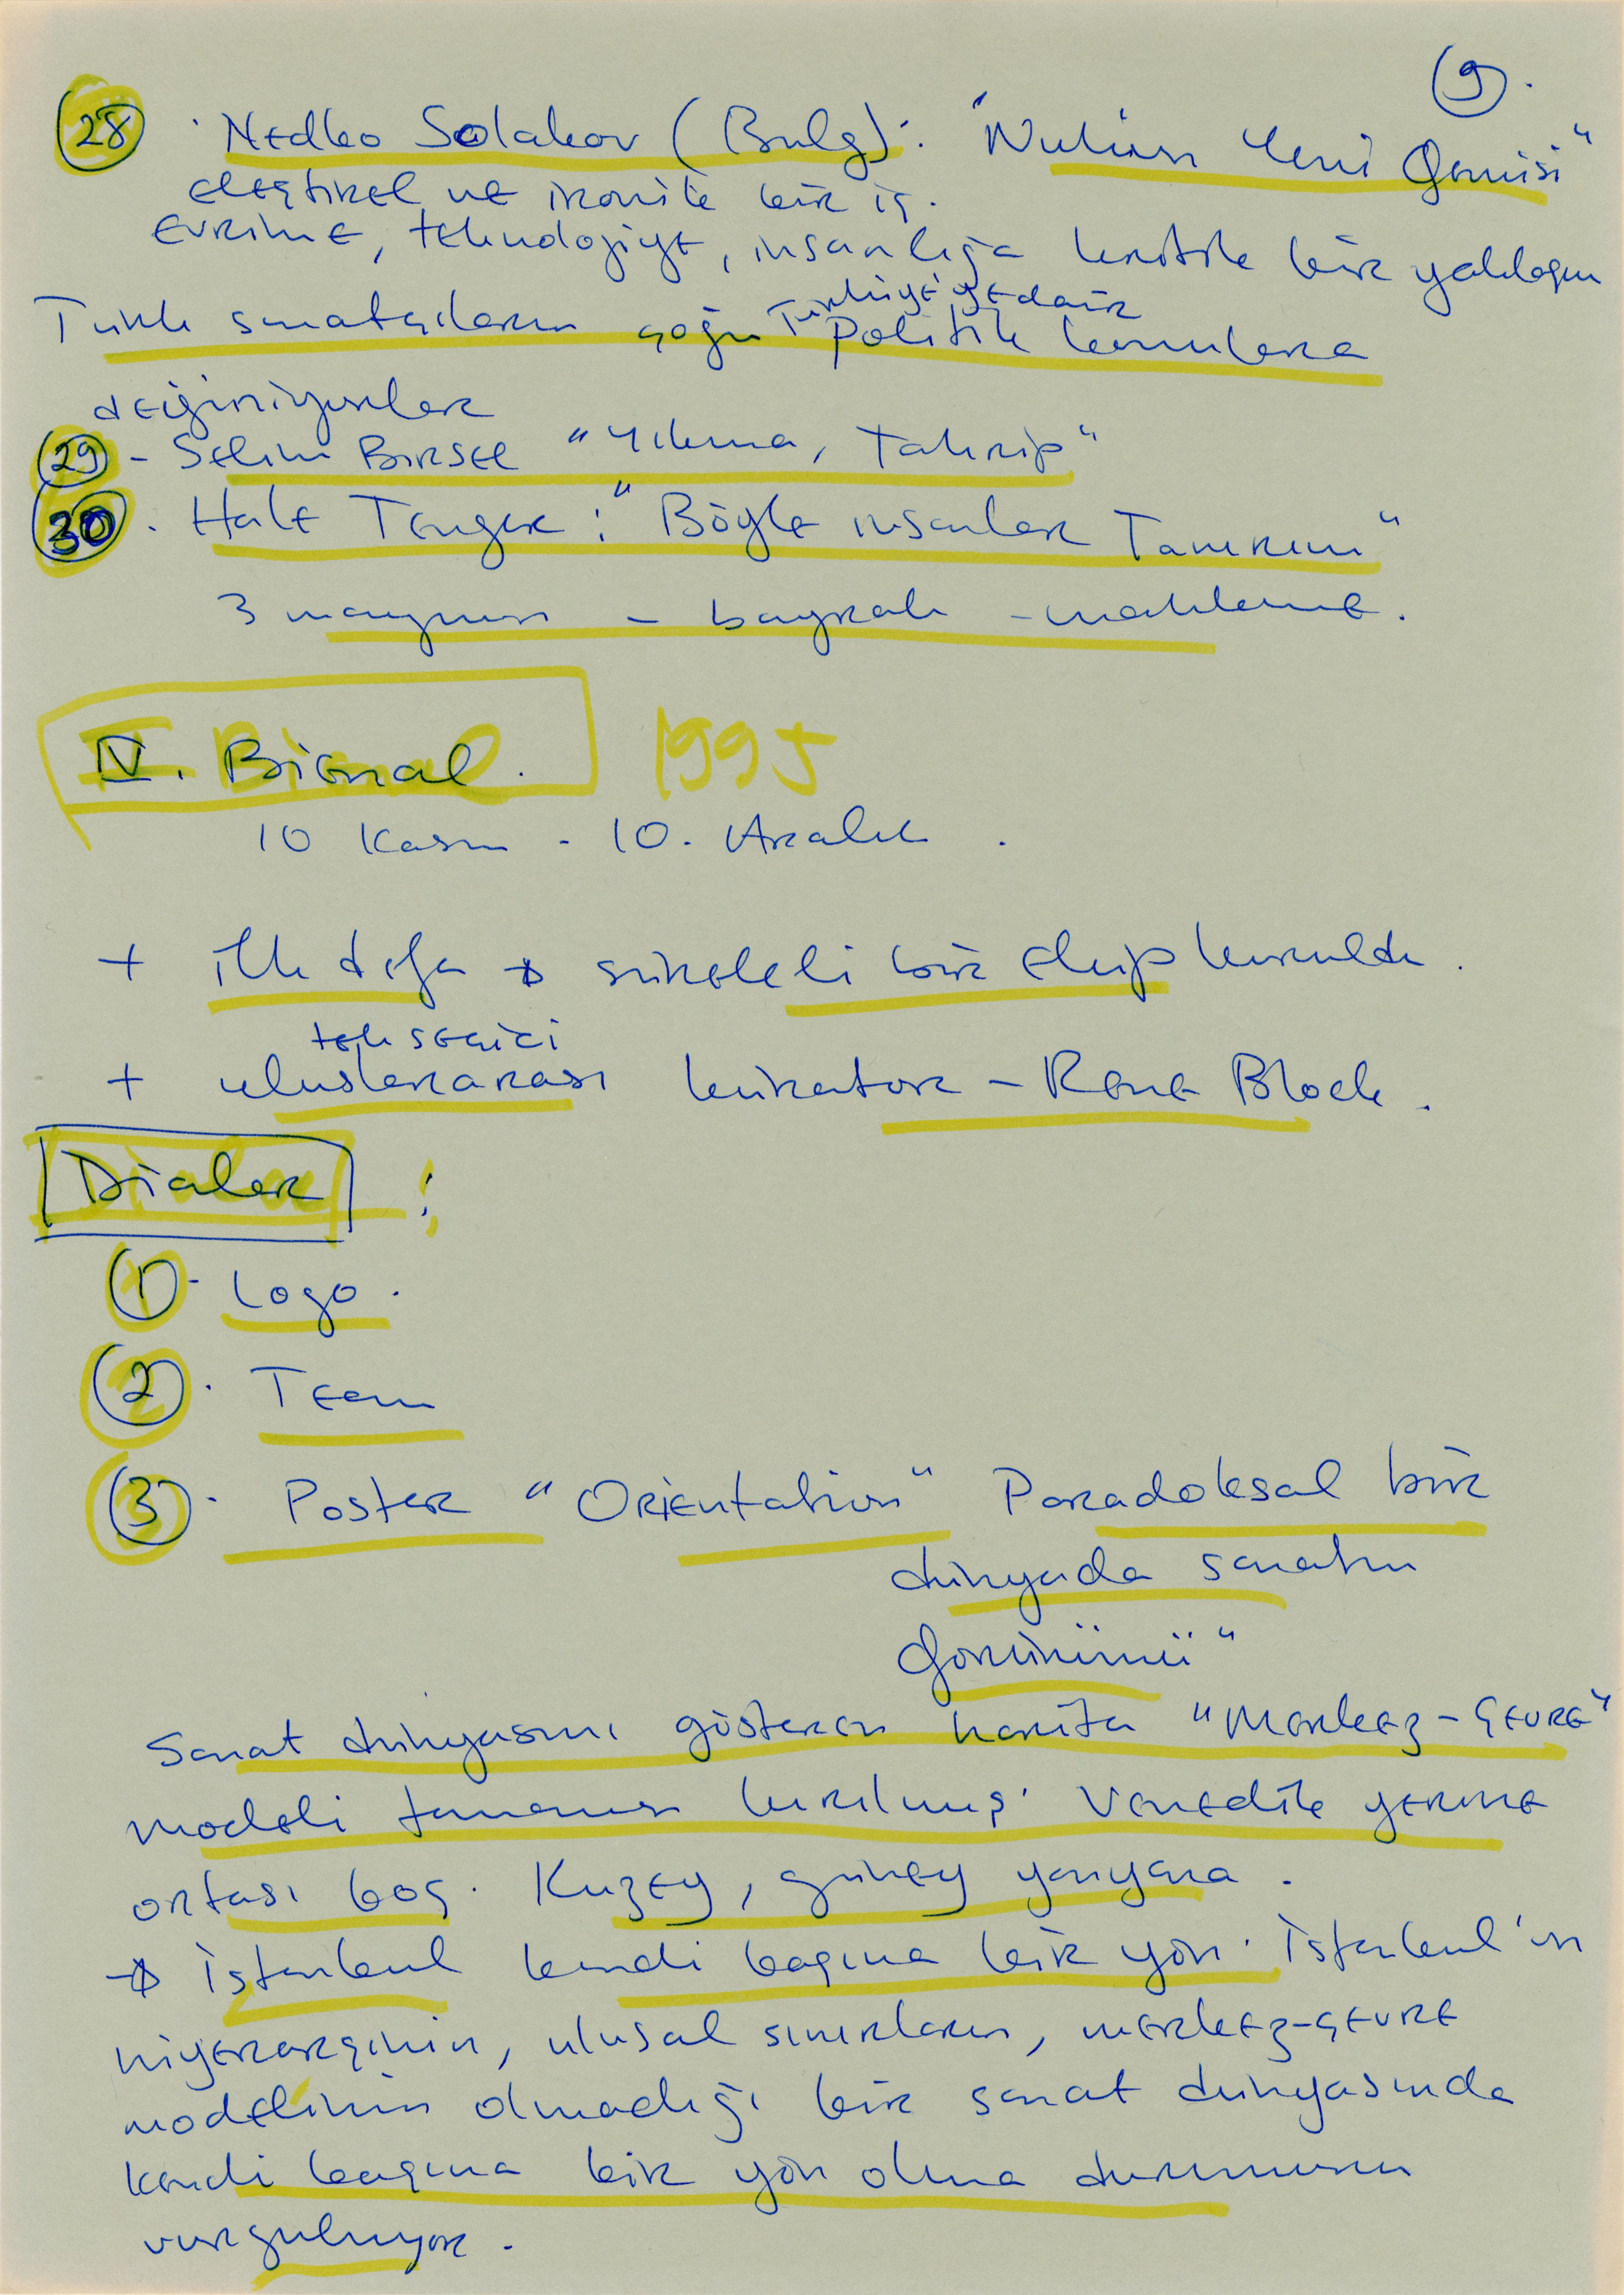 9.
28 · Nedko Solakov (Bulg): "Nuhun Yeni Gemisi"
eleştirel ve ironik bir iş.
Evrime, teknolojiye, insanlığa kritik bir yaklaşım
Türk sanatçıların çoğu Türkiye'ye dair politik konulara
değiniyorlar
29 - Selim Birsel "Yıkma, Tahrip"
30 · Hale Tenger : "Böyle insanlar Tanırım"
3 maymun - bayrak - mahkeme.
IV. Bienal. 1995
10 Kasım - 10. Aralık .
+ ilk defa sürekli bir ekip kuruldu.
tek seçici
+ uluslararası küratör - Rene Block.
Dialar :
1 · Logo .
2 · Team
3 · Poster "Orientation" Paradoksal bir
dünyada sanatın
görünümü"
Sanat dünyasını gösteren harita "Merkez-çevre"
modeli tamamen kırılmış. Venedik yerine
ortası boş. Kuzey, güney yanyana .
İstanbul kendi başına bir yön. İstanbul'un
hiyerarşinin, ulusal sınırların, merkez-çevre
modelinin olmadığı bir sanat dünyasında
kendi başına bir yön olma durumunu
vurguluyor .